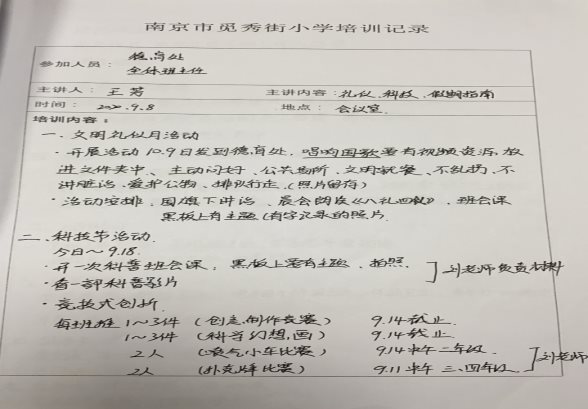 南京市觅秀街小学培训记录
参加人员： 德育处
全体班主任
主讲人： 王芳 主讲内容：礼仪、科技、假期指南
时间： 2020.9.8 地点： 会议室
培训内容：
一、文明礼仪月活动
· 开展活动 10.9日发到德育处，唱响国歌要有视频资源，放
进文件夹中、主动问好、公共场所、文明就餐、不乱扔、不
讲脏话、爱护公物、排队行走（照片留存）
· 活动安排、国旗下讲话、晨会朗读《八礼四仪》、班会课
黑板上有主题（有字记录的照片
二、科技节活动
今日～9.18.
· 开一次科普班会课，黑板上要有主题、拍照
· 看一部科普影片 刘老师负责材料
· 竞技式创新
每班推 1～3件 （创意制作竞赛） 9.14截止
1～3件 （科学幻想画） 9.14截止
2人 （喷气小车比赛） 9.14中午 二年级
2人 （扑克牌比赛） 9.11中午 三、四年级 刘老师